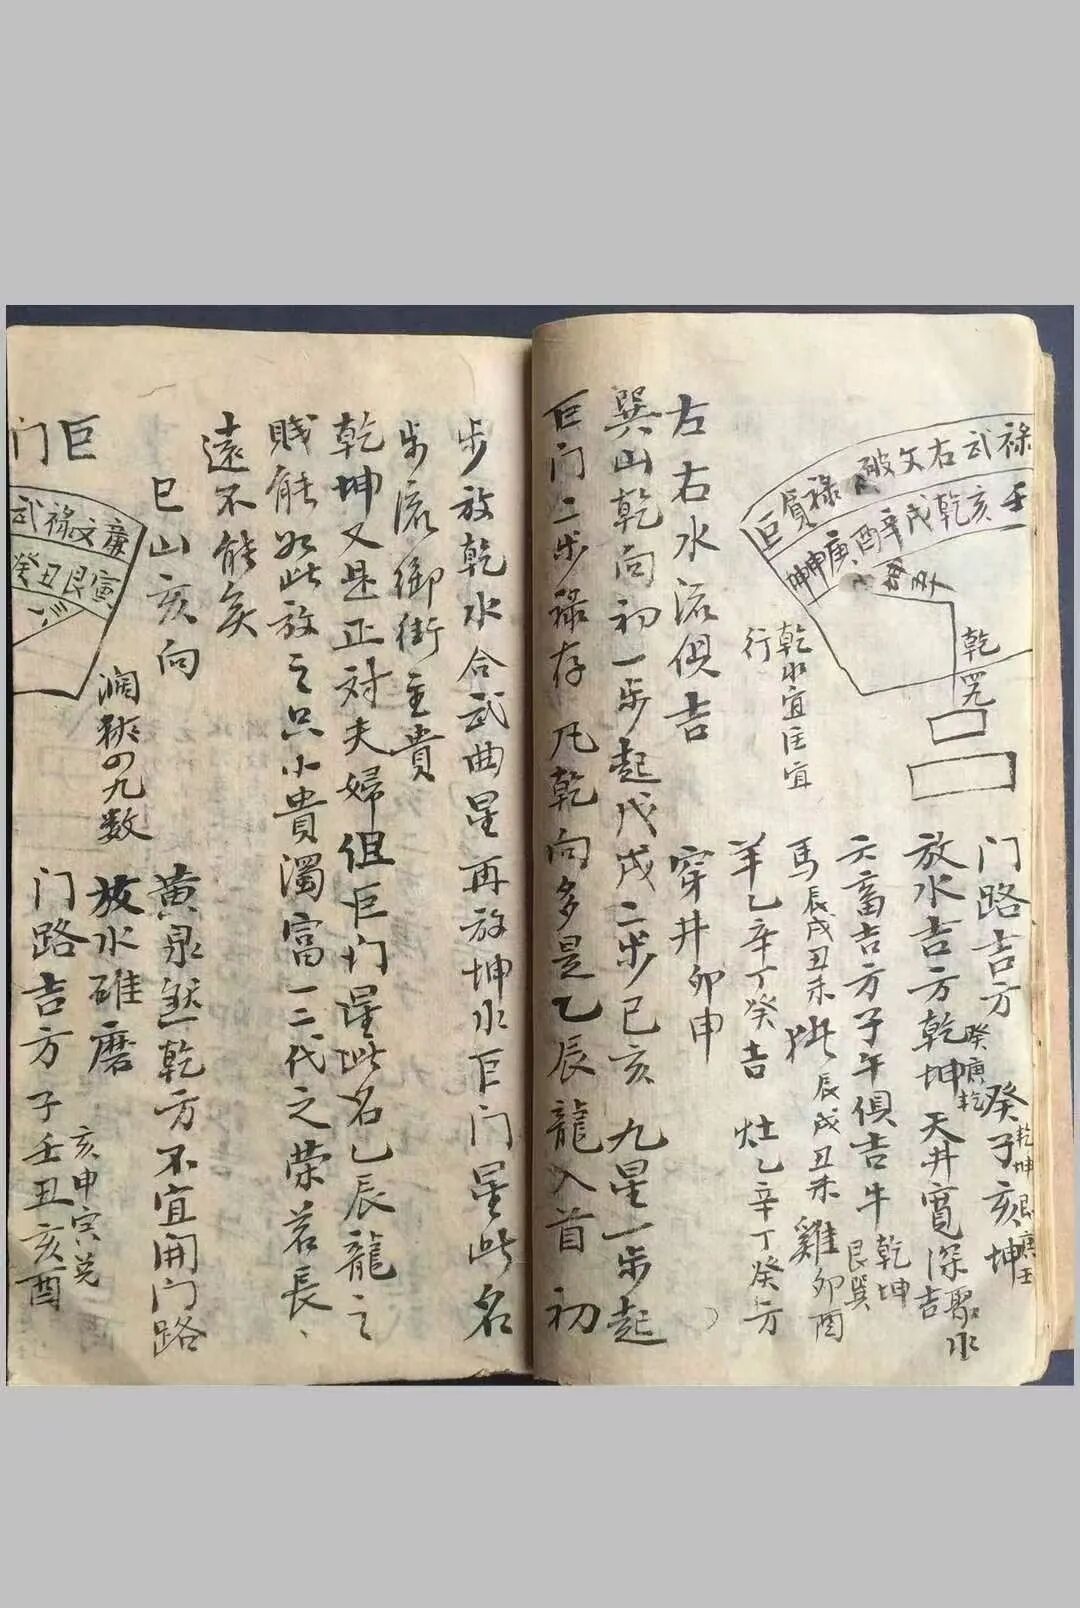 禄武右文破禄貭巨
壬亥乾戌辛酉庚申坤
乾
乾水宜匡宜
行
门路吉方
癸子亥坤
乾坤艮庚壬
放水吉方乾坤
癸庚乾
天井寬深吉
聚水
六畜吉方子午俱吉牛
乾坤
艮巽
馬辰戌丑未
辰戌丑未雞卯酉
羊乙辛丁癸吉
灶乙辛丁癸方
左右水流俱吉
穿井卯申
巽山乾向初一步起戊戌二步己亥九星一步起
巨门二步禄存凡乾向多是乙辰龍入首初
步放乾水合武曲星再放坤水巨门星此名
步流御街主貴
乾坤又是正对夫婦但巨门星此名乙辰龍之
賤能如此放之只小貴濁富一二代之荣若長
遠不能矣
巳山亥向
黄泉煞乾方不宜開门路
濶狹四九数
放水碓磨
亥申寅兑
门路吉方子壬丑亥酉
巨
门
武禄文廉
癸丑艮寅